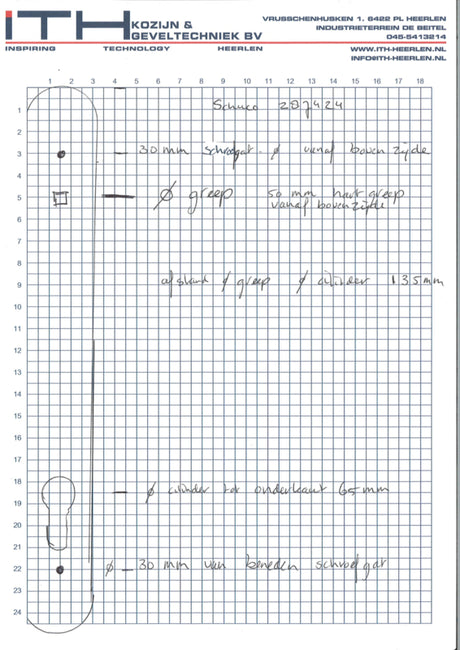 iTH KOZIJN &
GEVELTECHNIEK BV
INSPIRING TECHNOLOGY HEERLEN
VRUSSCHENHUSKEN 1. 6422 PL HEERLEN
INDUSTRIETERREIN DE BEITEL
045-5413214
WWW.ITH-HEERLEN.NL
INFO@ITH-HEERLEN.NL
1 2 3 4 5 6 7 8 9 10 11 12 13 14 15 16 17 18
1
2
3
4
5
6
7
8
9
10
11
12
13
14
15
16
17
18
19
20
21
22
23
24
Schuco 207424
30 mm schroefgat ϕ vanaf boven zijde
ϕ greep 50 mm hart greep
vanaf bovenzijde
afstand ϕ greep ϕ cilinder 135mm
ϕ cilinder tot onderkant 65mm
ϕ 30 mm van beneden schroefgat